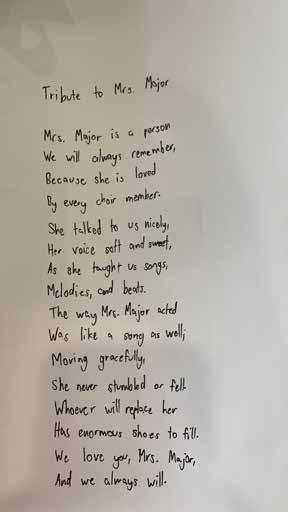 Tribute to Mrs. Major
Mrs. Major is a person
We will always remember,
Because she is loved
By every choir member.
She talked to us nicely,
Her voice soft and sweet,
As she taught us songs,
Melodies, and beats.
The way Mrs. Major acted
Was like a song as well;
Moving gracefully,
She never stumbled or fell.
Whoever will replace her
Has enormous shoes to fill.
We love you, Mrs. Major,
And we always will.